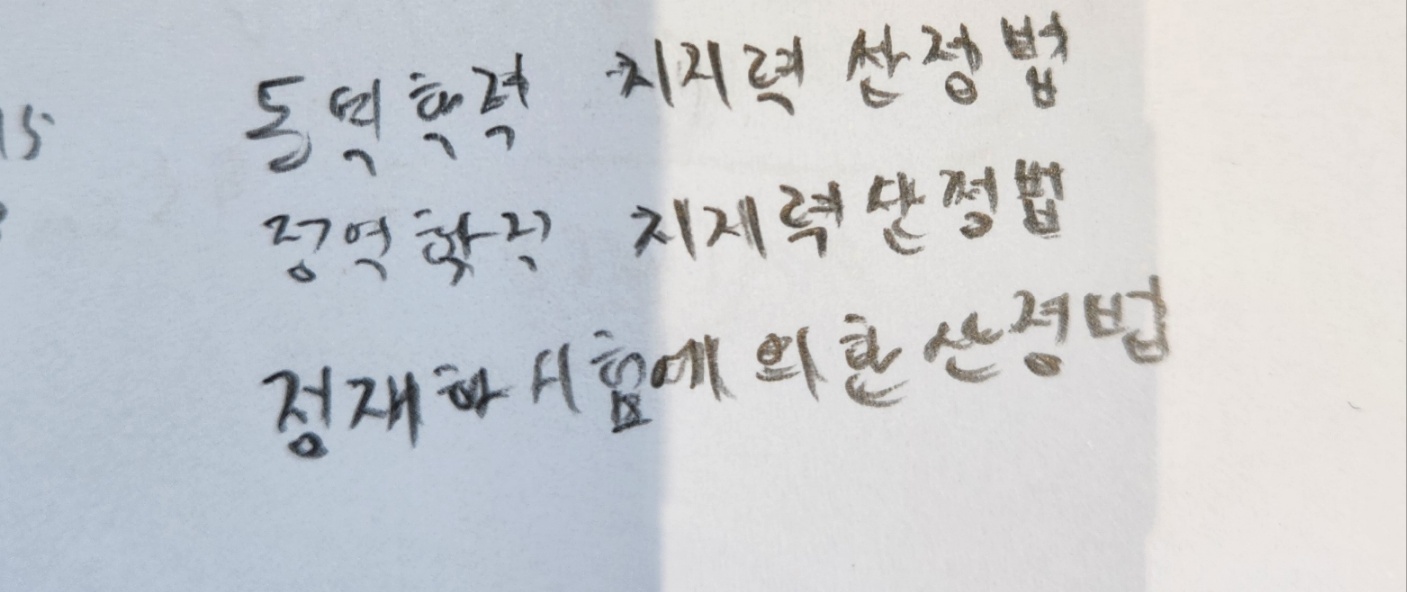 15
동역학적 지지력 산정법
정역학적 지지력 산정법
정재하시험에 의한 산정법